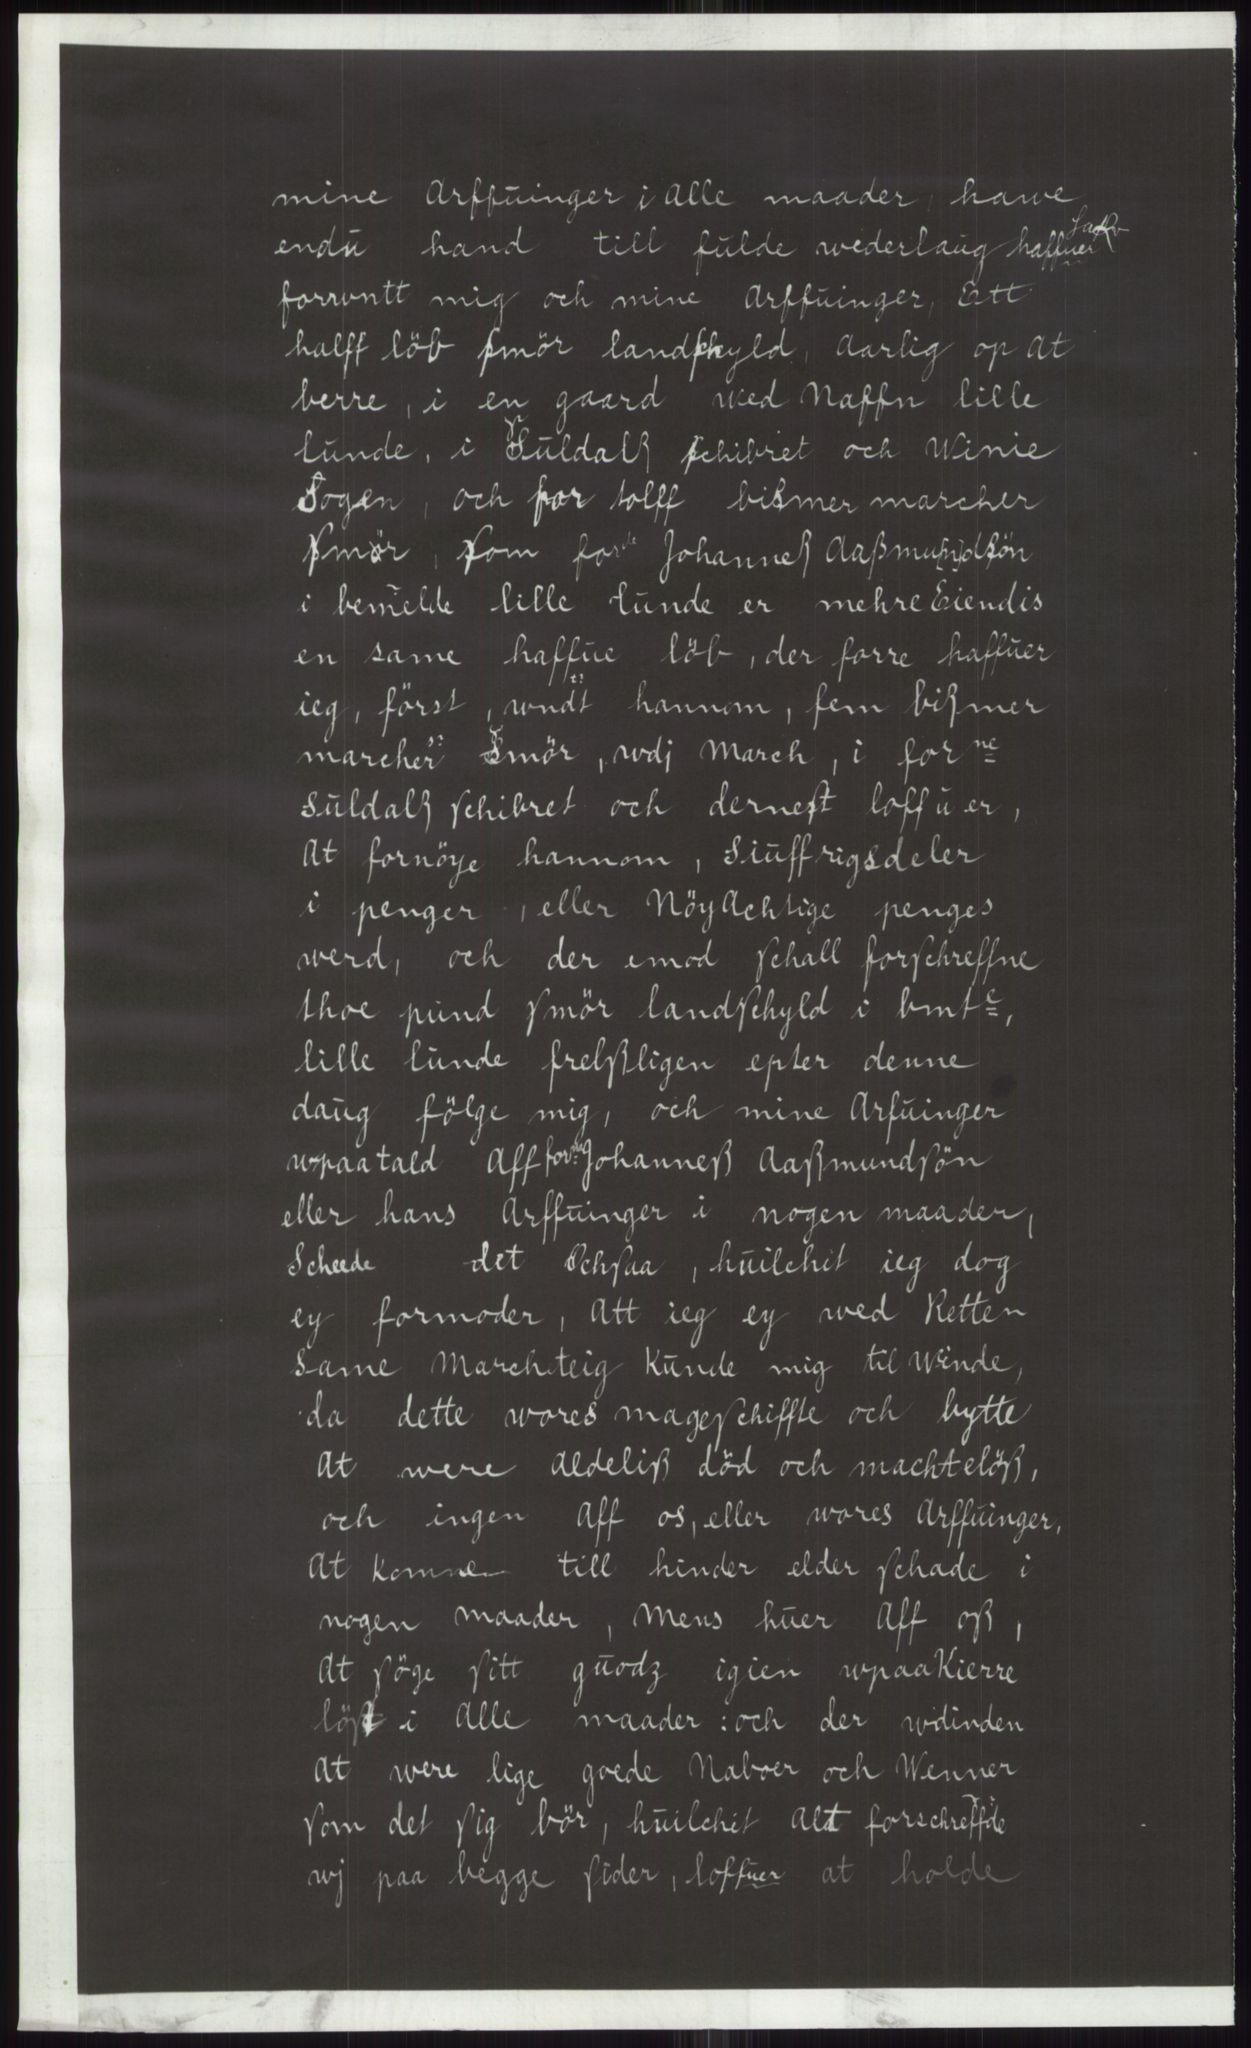 mine Arffuinger i Alle maader, hawe
endu hand till fulde wederlaug haffuer
forruntt mig och mine Arffuinger, Ett
halff löb smör landschyld, Aarlig op At
berre, i en gaard wed Naffn lille
lunde, i Suldalß schibret och Winie
Sogen, och for tolff bismer marcher
smör, som forde Johanneß Aaßmundsön
i bemelde lille lunde er mehre Eiendis
en same haffue löb, der forre haffuer
ieg, först, wndt hannom, fem bißmer
marcher Smör, wdj March, i forne
Suldalß schibret och dernest loffuer,
At fornöye hannom, Siuff rigsdeler
i penger, eller NöyAchtige penges
werd, och der emod schall forschreffne
thoe pund smör landschyld i bmte,
lille lunde frelßligen epter denne
daug fölge mig, och mine Arfuinger
wpaatald Aff forne Johanneß Aaßmundsön
eller hans Arffuinger i nogen maader,
Scheede det Schsaa, huilchit ieg dog
ey formoder, Att ieg ey wed Retten
Same Marchteig Kunde mig til winde,
da dette wores mageschiffte och bytte
At were Aldeliß död och machtelöß,
och ingen Aff os, eller wores Arffuinger,
At komme till hinder elder schade i
nogen maader, Mens huer Aff oß,
At söge sitt guodz igien wpaaKierre
löst i Alle maader: och der wdinden
At were lige goede Naboer och Wenner
som det sig bör, huilchit Alt forschreffde
wj paa begge sider, loffuer at holde